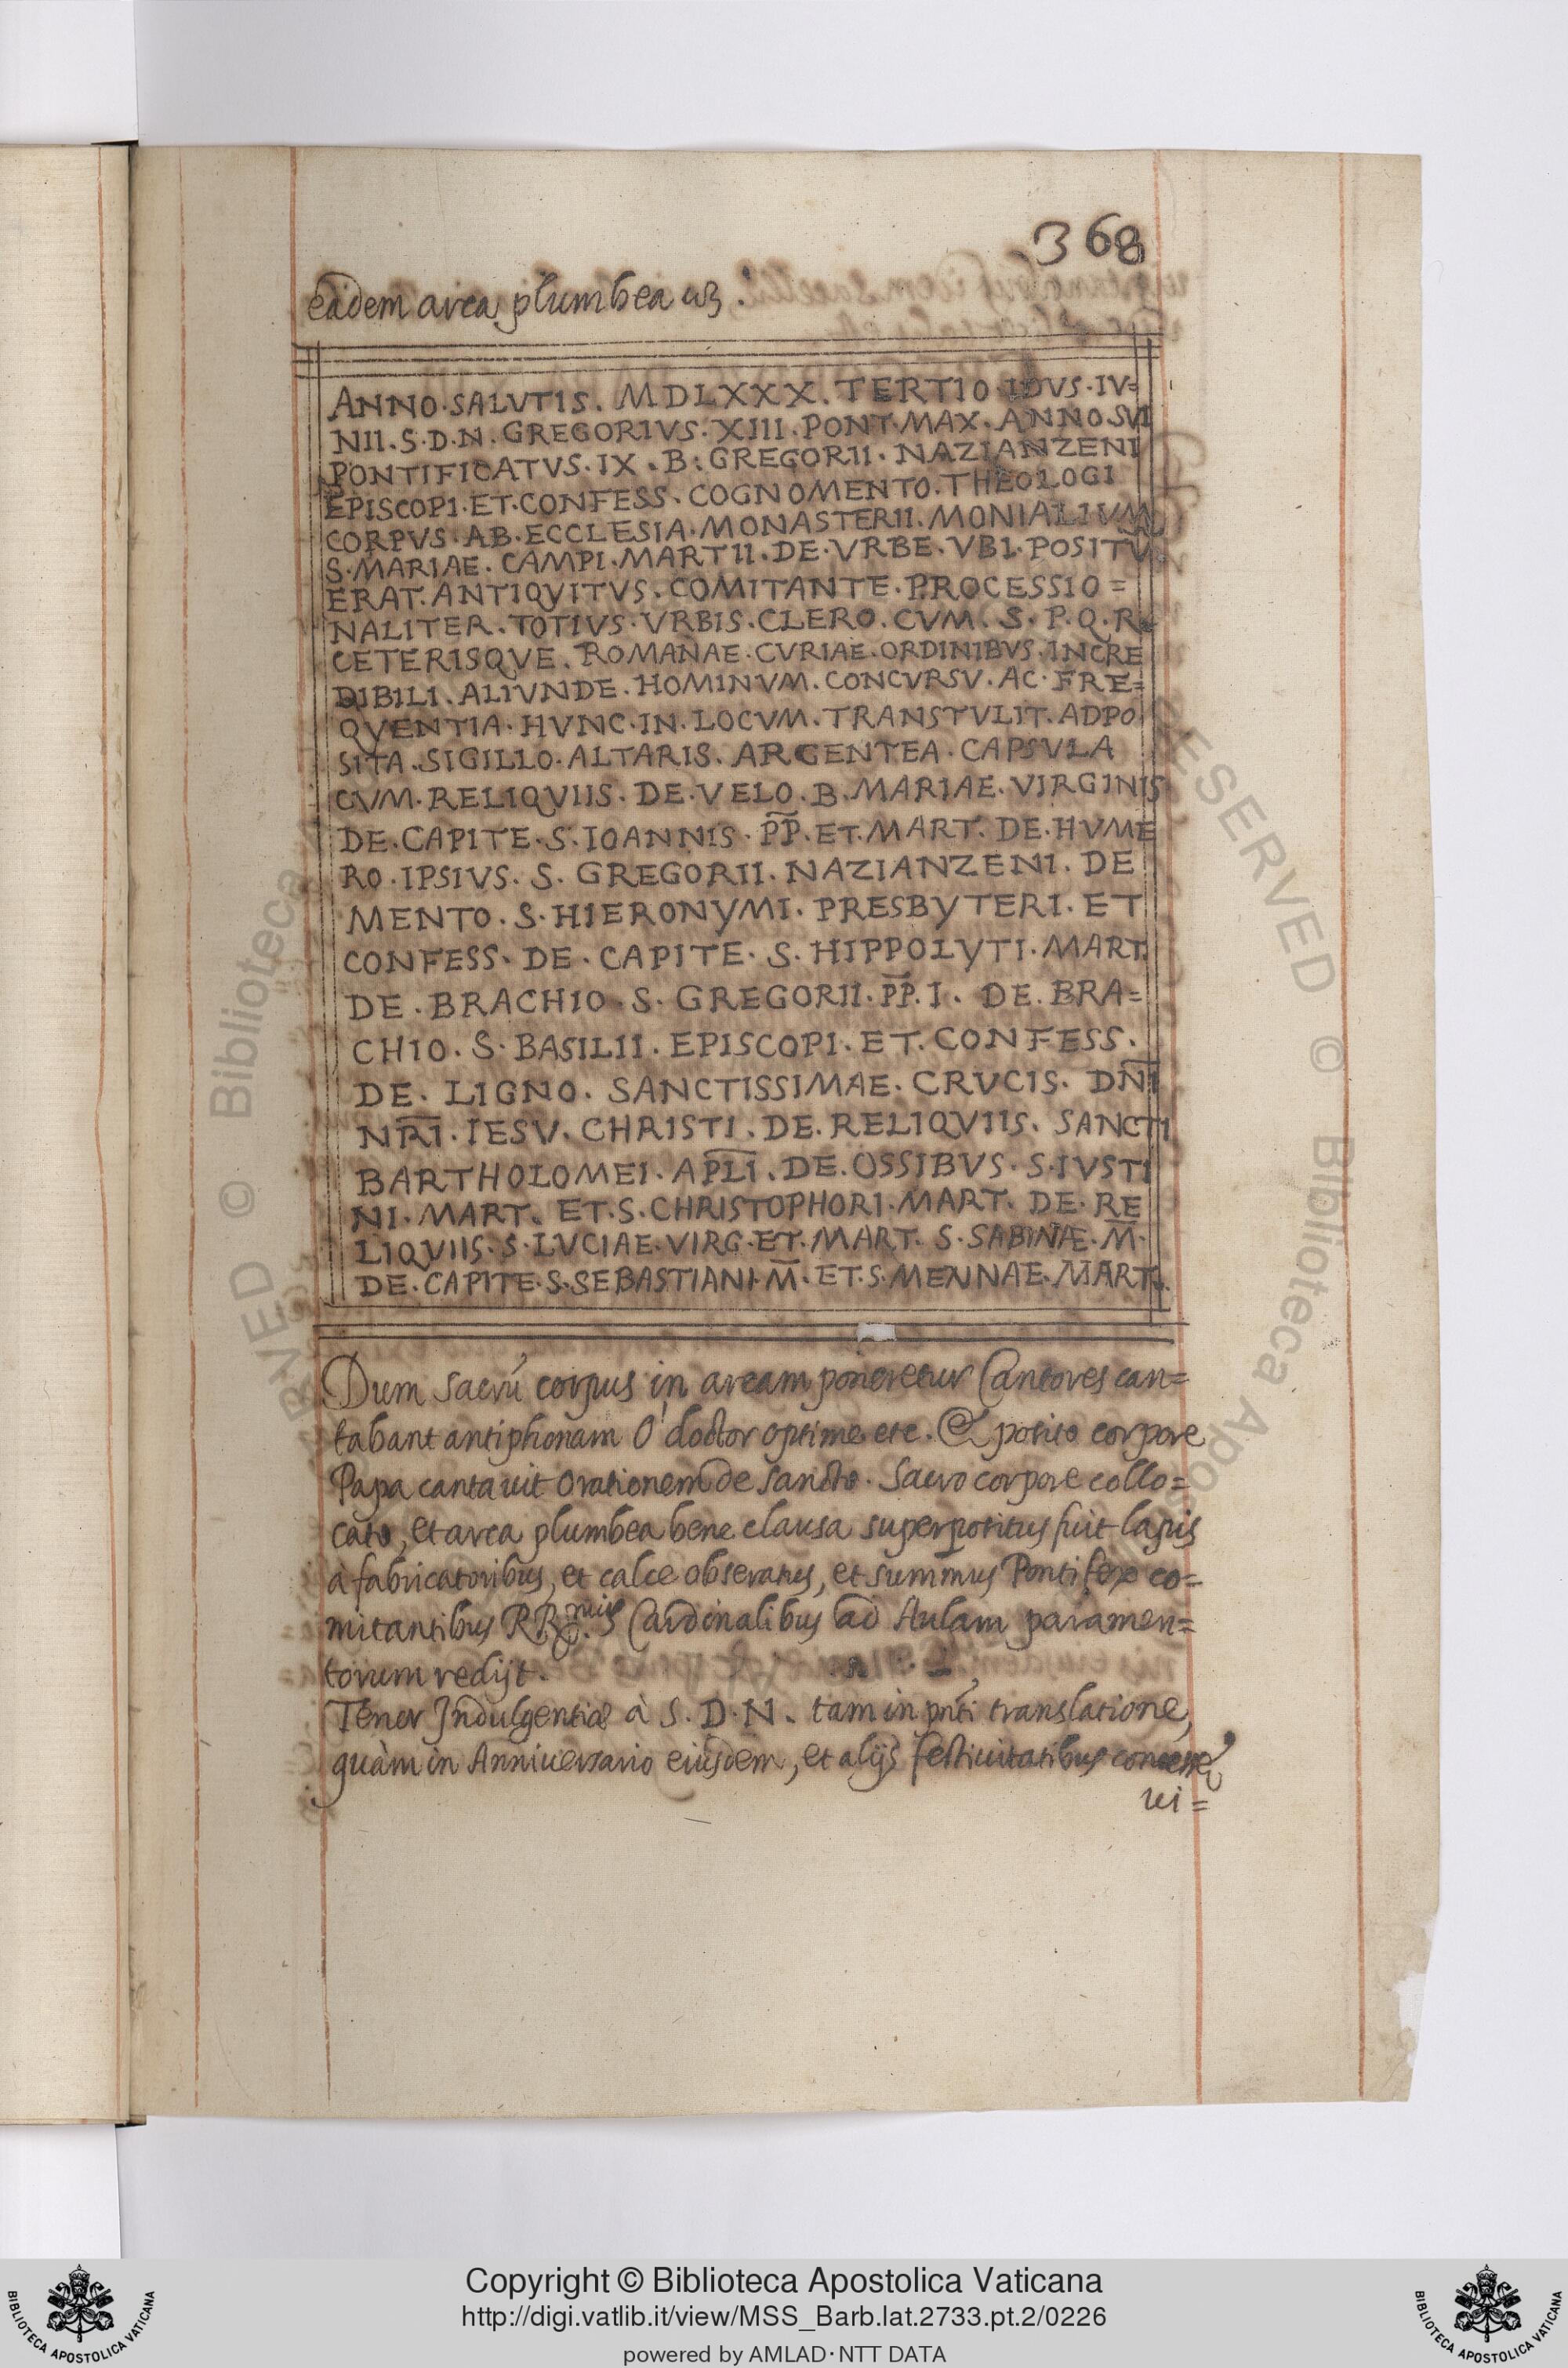 368
eadem arca plumbea uz.
ANNO·SALVTIS. MDLXXX. TERTIO IDVS·IV=
NII. S·D·N. GREGORIVS·XIII. PONT·MAX. ANNO·SVI
PONTIFICATVS. IX. B. GREGORII. NAZIANZENI
EPISCOPI·ET·CONFESS. COGNOMENTO. THEOLOGI
CORPVS·AB·ECCLESIA·MONASTERII. MONIALIVM
S·MARIAE. CAMPI·MARTII·DE·VRBE·VBI·POSITV
ERAT·ANTIQVITVS. COMITANTE. PROCESSIO=
NALITER. TOTIVS·VRBIS. CLERO. CVM. S. P. Q. R.
CETERISQVE. ROMANAE·CVRIAE·ORDINIBVS·INCRE
DIBILI. ALIVNDE. HOMINVM. CONCVRSV. AC·FRE=
QVENTIA·HVNC·IN·LOCVM. TRANSTVLIT. ADPO
SITA. SIGILLO·ALTARIS. ARGENTEA. CAPSVLA
CVM·RELIQVIIS. DE·VELO. B. MARIAE. VIRGINIS
DE·CAPITE·S·IOANNIS. P̄P̄·ET·MART. DE·HVME
RO·IPSIVS. S. GREGORII. NAZIANZENI. DE
MENTO. S·HIERONYMI. PRESBYTERI. ET
CONFESS. DE. CAPITE. S. HIPPOLYTI. MART.
DE. BRACHIO·S. GREGORII. P̄P̄. I. DE. BRA=
CHIO. S·BASILII. EPISCOPI. ET. CONFESS.
DE. LIGNO. SANCTISSIMAE. CRVCIS. DN̄I
NR̄I. IESV. CHRISTI. DE. RELIQVIIS. SANCTI
BARTHOLOMEI. APL̄I. DE. OSSIBVS. S·IVSTI
NI. MART. ET. S. CHRISTOPHORI. MART. DE. RE
LIQVIIS. S·LVCIAE·VIRG·ET·MART. S·SABINÆ. M̄.
DE·CAPITE·S·SEBASTIANI·M̄. ET·S·MENNAE·MART.
Dum sacrū corpus in arcam poneretur Cantores can=
tabant antiphonam O' doctor optime etc. Et posito corpore
Papa cantavit orationem de sancto. Sacro corpore collo=
cato, et arca plumbea bene clausa superpositus fuit lapis
à fabricatoribus, et calce obseratus, et summus Pontifex co=
mitantibus RR.mis Cardinalibus ad Aulam paramen=
torum redijt.
Tenor Indulgentiæ à S. D. N. tam in pn̄ti translatione,
quàm in Anniversario eiusdem, et alijs festivitatibus
ui=
Copyright © Biblioteca Apostolica Vaticana
http://digi.vatlib.it/view/MSS_Barb.lat.2733.pt.2/0226
powered by AMLAD·NTT DATA
BIBLIOTECA APOSTOLICA VATICANA
BIBLIOTECA APOSTOLICA VATICANA